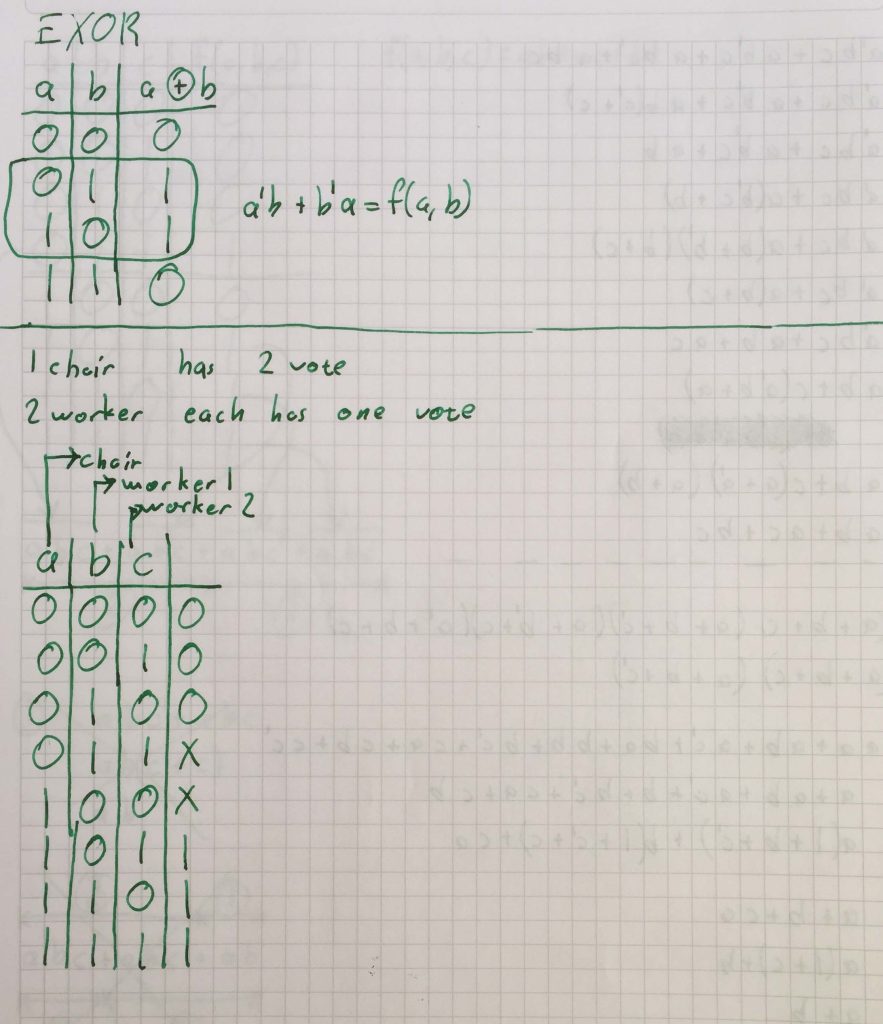 EXOR
a b a ⊕ b
0 0 0
0 1 1
1 0 1
1 1 0
a'b + b'a = f(a, b)
1 chair has 2 vote
2 worker each has one vote
chair
worker 1
worker 2
a b c
0 0 0 0
0 0 1 0
0 1 0 0
0 1 1 X
1 0 0 X
1 0 1 1
1 1 0 1
1 1 1 1